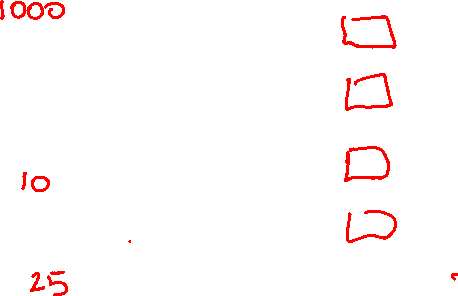 1000
10
25